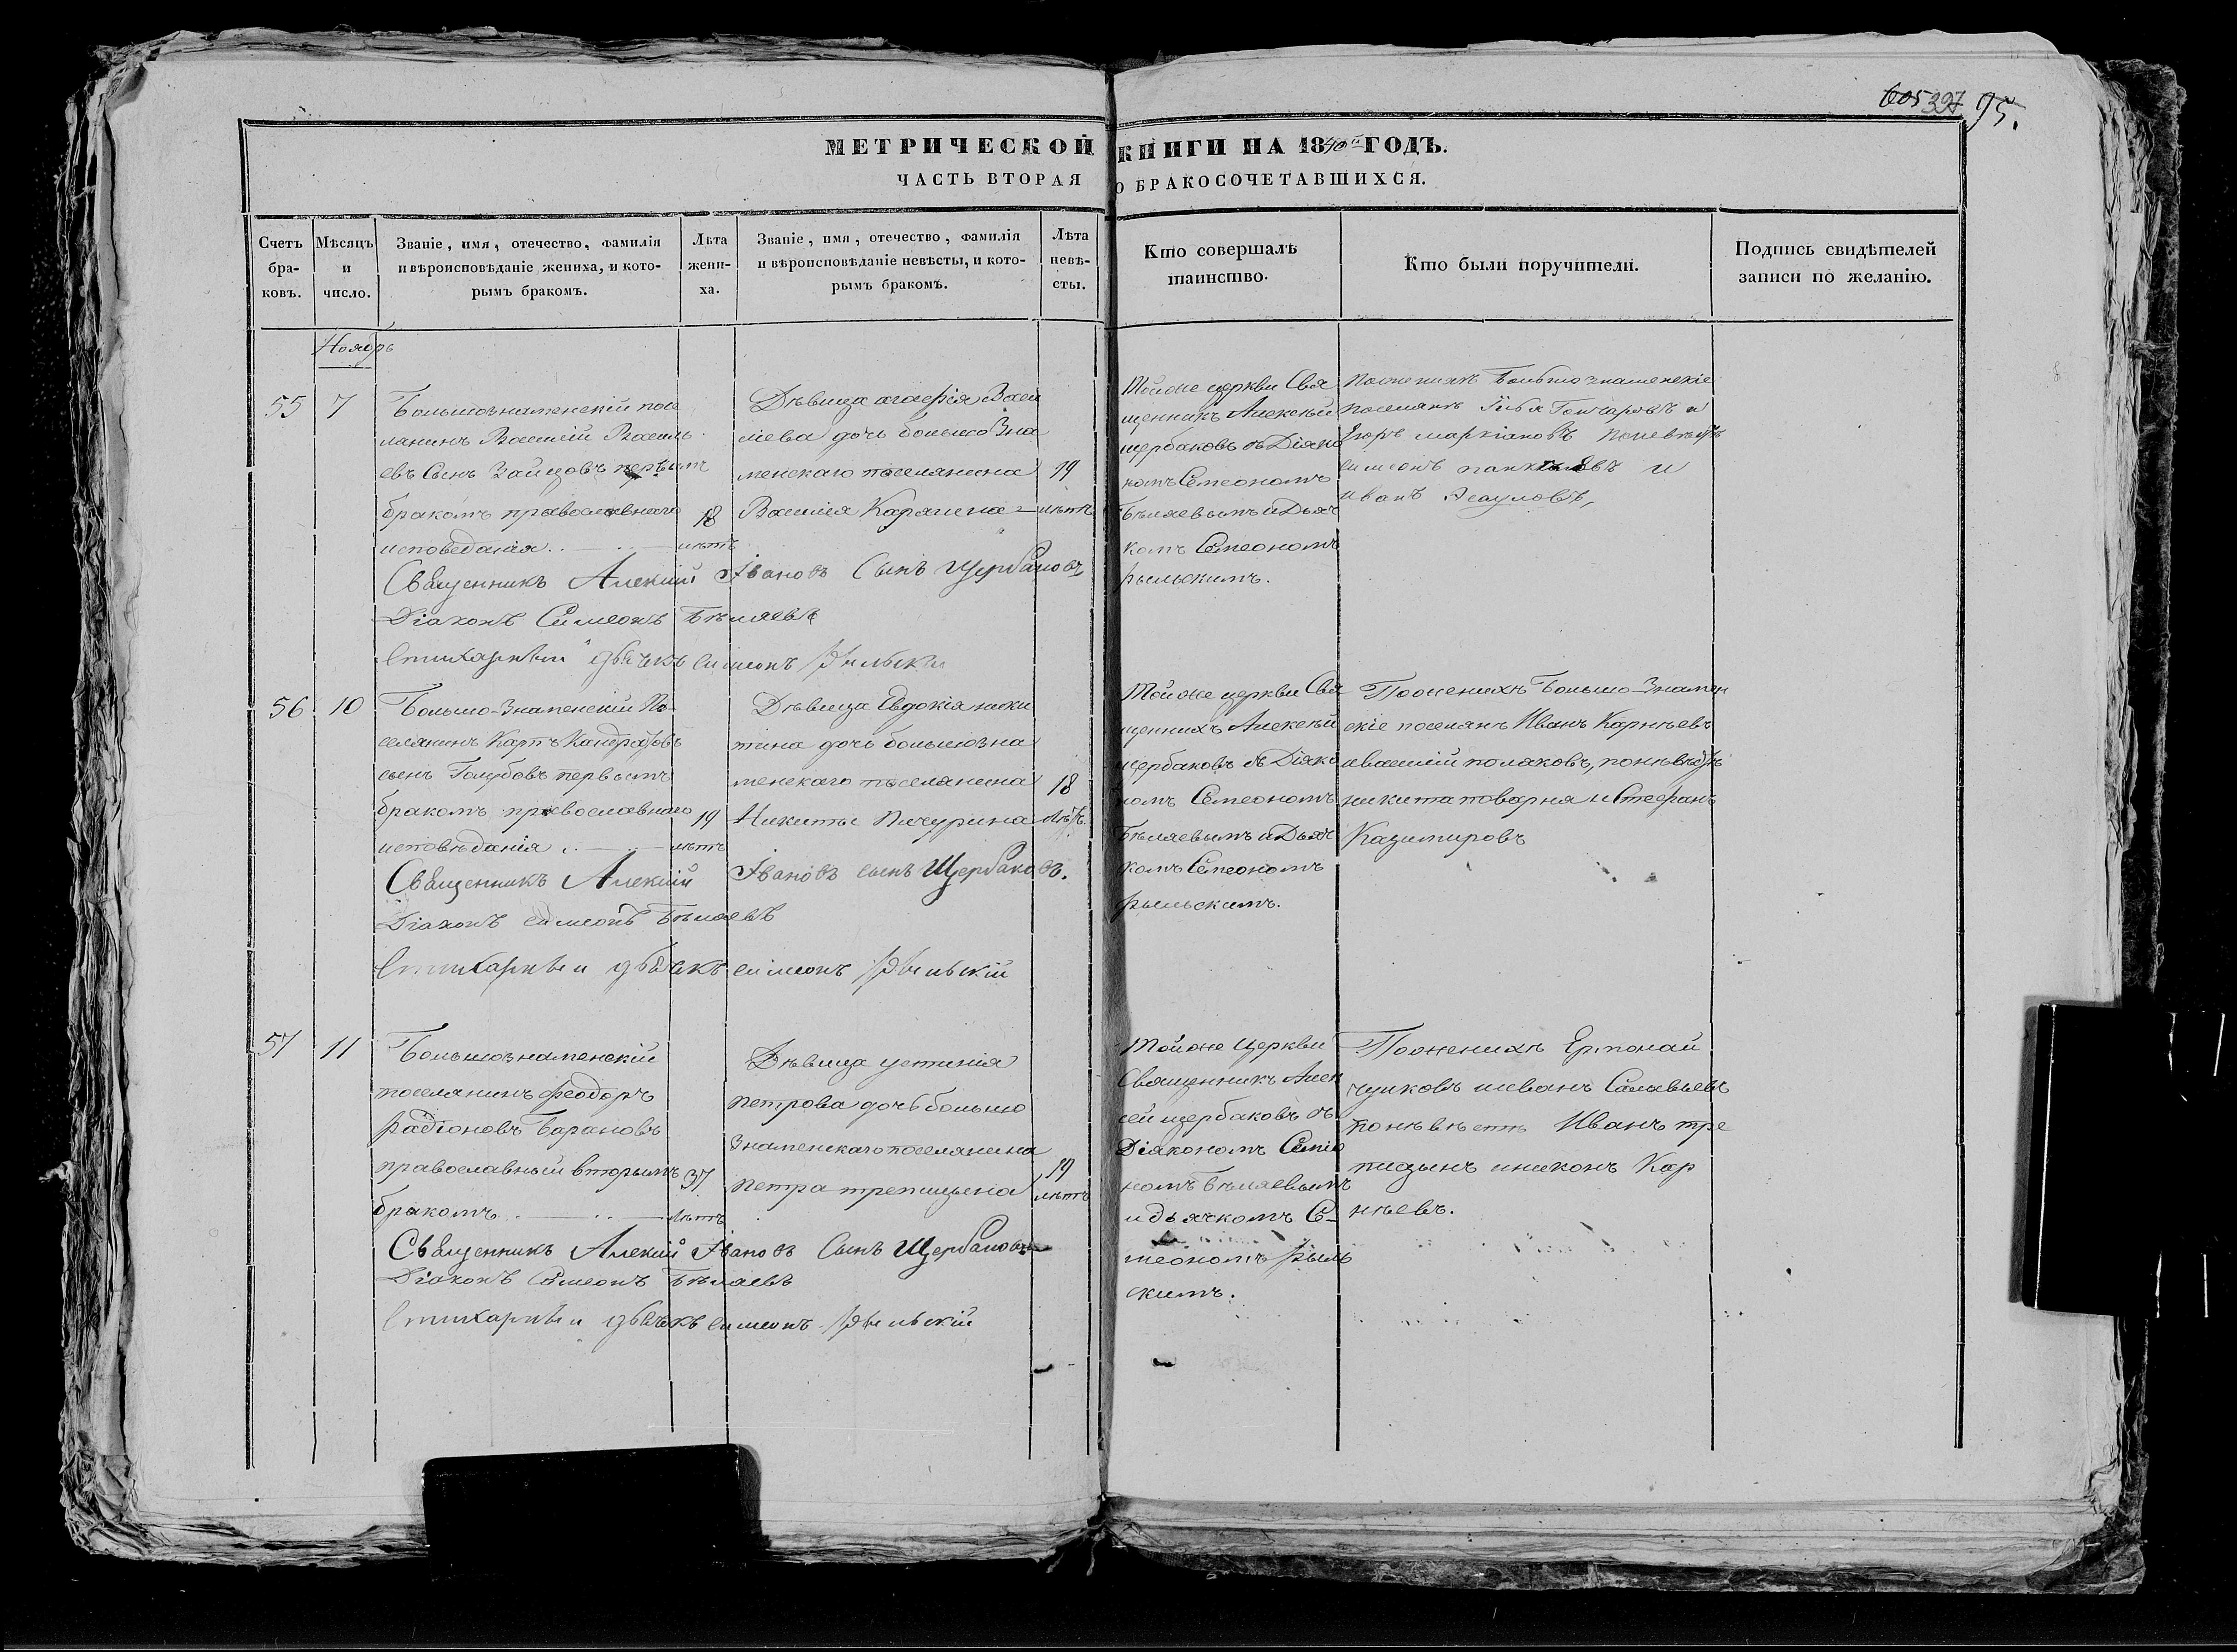 605 327 95.
МЕТРИЧЕСКОЙ КНИГИ НА 1840й ГОДЪ.
ЧАСТЬ ВТОРАЯ О БРАКОСОЧЕТАВШИХСЯ.
Счетъ бра-ковъ.
Мѣсяцъ и число.
Званіе, имя, отечество, фамилія
и вѣроисповѣданіе жениха, и кото-
рымъ бракомъ.
Лѣта жени-ха.
Званіе, имя, отечество, фамилія
и вѣроисповѣданіе невѣсты, и кото-
рымъ бракомъ.
Лѣта невѣ-сты.
Кто совершалъ
таинство.
Кто были поручители.
Подпись свидѣтелей
записи по желанію.
Ноябрь
55
7
Большознаменскій посе
лянинъ Василій Василь
евъ Сынъ Зайцовъ первымъ
бракомъ православнаго
исповеданія
18
лѣтъ
Дѣвица агафія Васи
лиева дочь большоЗна
менскаго поселянина
Василия Карагина
19
лѣтъ
Тойже церкви Свя
щенникъ Алексѣй
щербаковъ съ Діяко
номъ Семеономъ
Бѣляевымъ и Дьяч
комъ Семеономъ
рыльскимъ.
Поженихѣ Большознаменскіе
поселяне Илья Гончаровъ и
Егоръ маркіановъ поневѣстѣ
симеонъ и
иванъ Есауловъ,
Священникъ Алексій Ивановъ Сынъ Щербаковъ
Діаконъ Симеонъ Бѣляевъ
Стихарный дьячекъ симеонъ Рыльски
56
10
Большо-Знаменскій По
селянинъ Карпъ Кандратовъ
сынъ Голубовъ первымъ
бракомъ православнаго
исповѣданія
19
лѣтъ
Дѣвица Евдокія ники
тина дочь большозна
менскаго поселянина
Никиты Пичурина
18
лѣтъ.
Тойже церкви Свя
щенникъ Алексѣй
щербаковъ съ Діяко
номъ Семеономъ
Бѣляевымъ и Дьяч
комъ Семеономъ
рыльскимъ.
Поженихѣ Большо-Знамен
скіе поселяне Иванъ Карнѣевъ
ивасилій поляковъ, поневѣстѣ
никита товарня и Стефанъ
Казимировъ
Священникъ Алексій Ивановъ сынъ Щербаковъ.
Діаконъ симеонъ Бѣляевъ
Стихарный дьячекъ симеонъ Рыльскій
57
11
Большознаменскій
поселянинъ феодоръ
радіоновъ Барановъ
православный вторымъ
бракомъ
37
лѣтъ
Дѣвица устинія
петрова дочь большо
Знаменскаго поселянина
петра трепицына
19
лѣтъ
Тойже Церкви
Священникъ Алек
сѣй щербаковъ съ
Діякономъ Семео
номъ бѣляевымъ
идьячкомъ Се
меономъ рыль
скимъ.
Поженихѣ
чушковъ ииванъ Салавьевъ
поневѣстѣ Иванъ тре
пицынъ иниконъ Кар
нѣевъ.
Священникъ Алексій Ивановъ Сынъ Щербаковъ
Діаконъ Симеонъ Бѣляевъ
Стихарный дьячекъ симеонъ Рыльскій